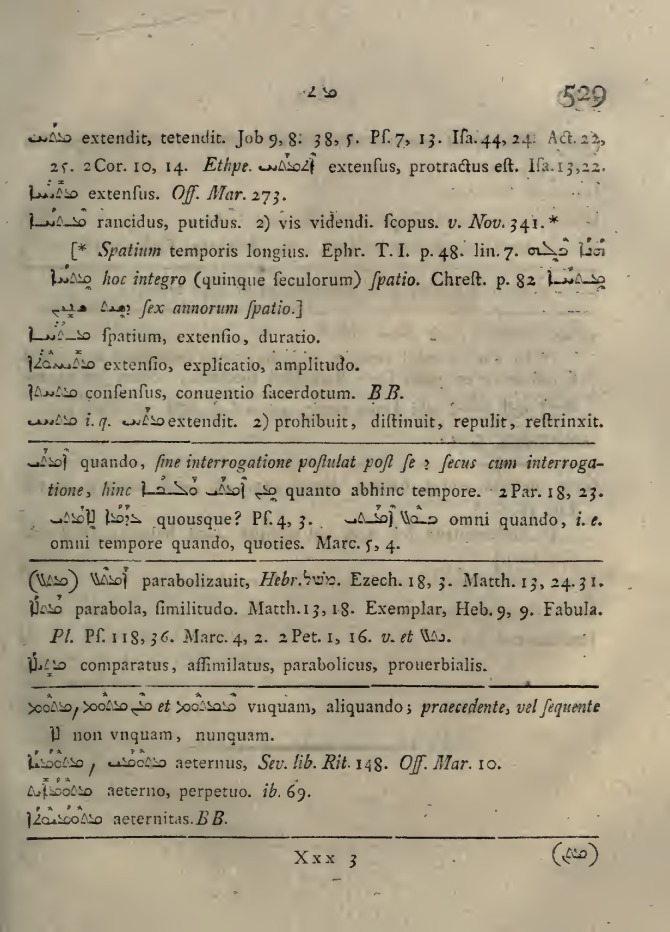 ܡܬ 529
ܡܬܚ extendit, tetendit. Job 9, 8. 38, 5. Pſ. 7, 13. Iſa. 44, 24. Act. 22,
25. 2 Cor. 10, 14. Ethpe. ܐܬܡܬܚ extenſus, protractus eſt. Iſa. 13, 22.
ܡܬܝܚܐ extenſus. Off. Mar. 273.
rancidus, putidus. 2) vis videndi. ſcopus. v. Nov. 341.*
[* Spatium temporis longius. Ephr. T. I. p. 48. lin. 7. ܗܢܐ ܟܠܗ
ܡܬܚܐ hoc integro (quinque ſeculorum) ſpatio. Chreſt. p. 82 ܡܬܚܐ
ܕܫܬ ܫܢܝܢ ſex annorum ſpatio.]
ܡܬܚܐ ſpatium, extenſio, duratio.
ܡܬܝܚܘܬܐ extenſio, explicatio, amplitudo.
conſenſus, conuentio ſacerdotum. BB.
ܡܬܚ i. q. ܡܬܚ extendit. 2) prohibuit, diſtinuit, repulit, reſtrinxit.
ܐܡܬܝ quando, ſine interrogatione poſtulat poſt ſe ܕ ſecus cum interroga-
tione, hinc ܡܢ ܐܡܬܝ ܠܟܐ quanto abhinc tempore. 2 Par. 18, 23.
ܥܕܡܐ ܠܐܡܬܝ quousque? Pſ. 4, 3. ܟܠ ܐܡܬܝ omni quando, i. e.
omni tempore quando, quoties. Marc. 5, 4.
(ܡܬܠ) ܐܡܬܠ parabolizauit, Hebr. משל. Ezech. 18, 3. Matth. 13, 24. 31.
ܡܬܠܐ parabola, ſimilitudo. Matth. 13, 18. Exemplar, Heb. 9, 9. Fabula.
Pl. Pſ. 118, 36. Marc. 4, 2. 2 Pet. 1, 16. v. et
ܡܬܝܠܐ comparatus, aſſimilatus, parabolicus, prouerbialis.
ܡܬܘܡ, ܡܢ ܡܬܘܡ et ܡܡܬܘܡ vnquam, aliquando; praecedente, vel ſequente
ܠܐ non vnquam, nunquam.
ܡܬܘܡܝܐ, ܡܬܘܡܝ aeternus, Sev. lib. Rit. 148. Off. Mar. 10.
ܡܬܘܡܐܝܬ aeterno, perpetuo. ib. 69.
ܡܬܘܡܝܘܬܐ aeternitas. BB.
Xxx 3 (ܡܬܢ)